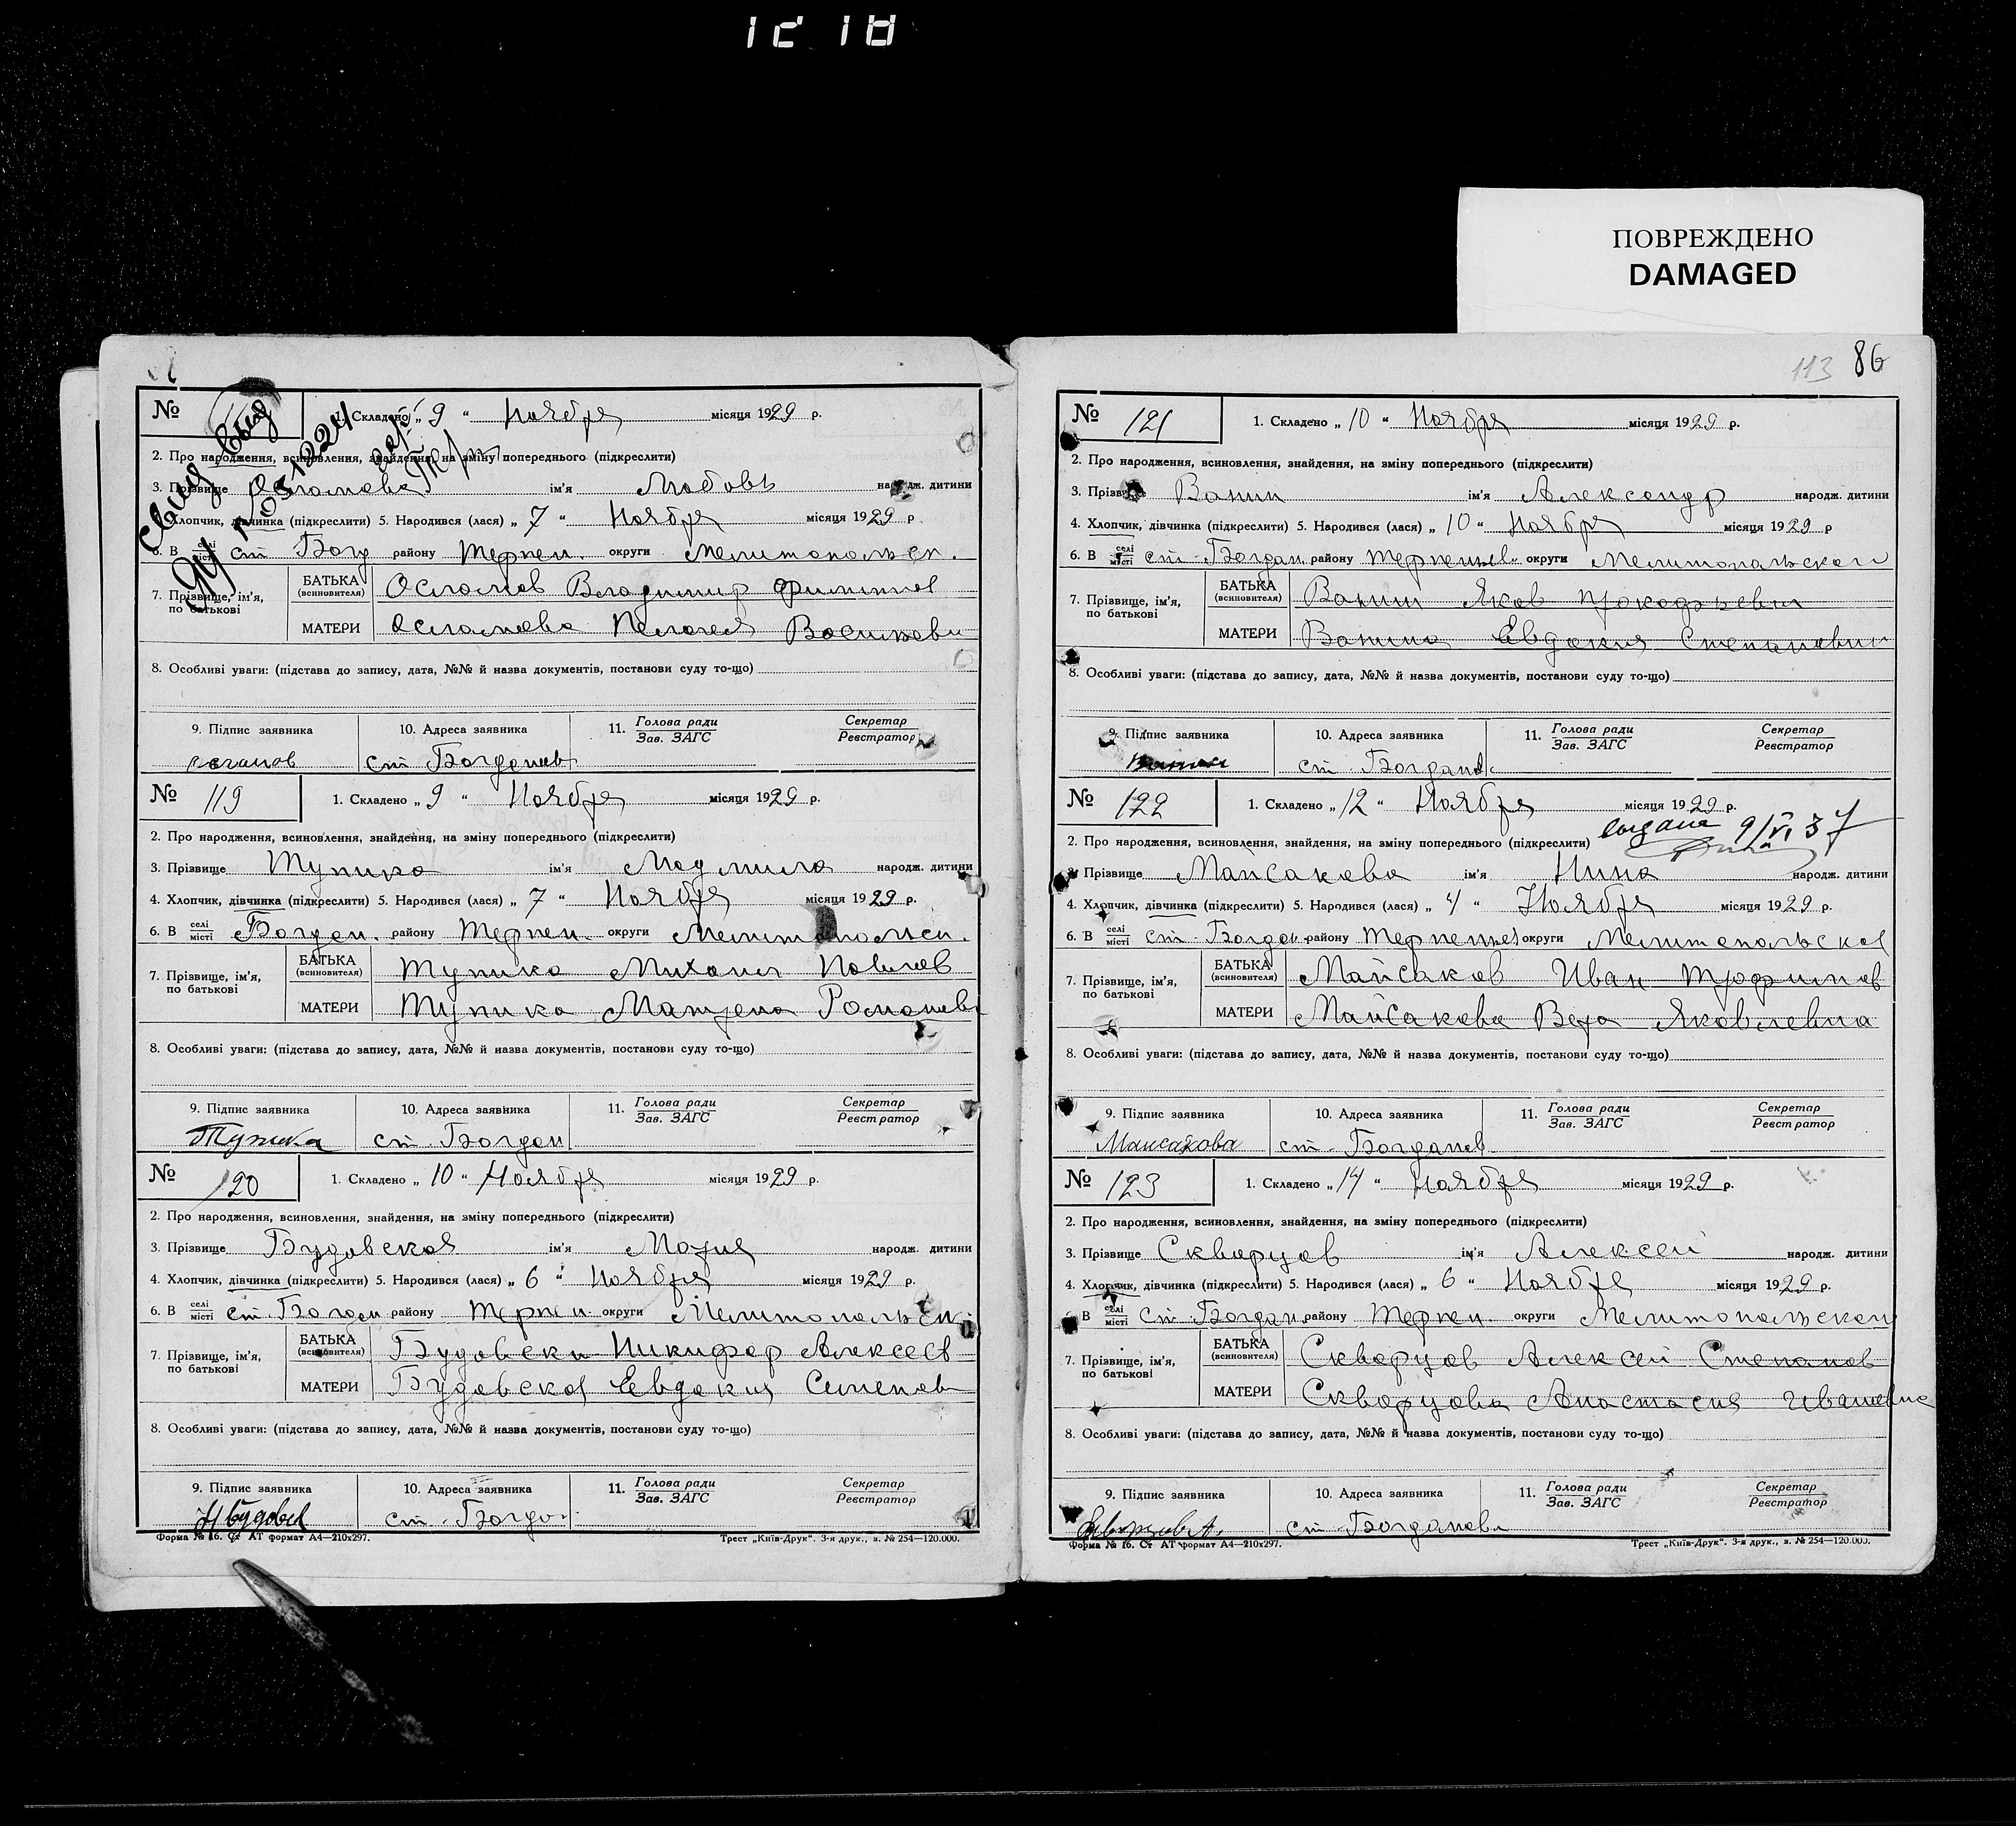 12 18
ПОВРЕЖДЕНО
DAMAGED
№ 1. Складено „ 9 “ Ноября місяця 1929 р.
2. Про народження, всиновлення, знайдення, на зміну попереднього (підкреслити)
3. Прізвище ім'я Любовь народж. дитини
Хлопчик, дівчинка (підкреслити) 5. Народився (лася) „ 7 “ Ноября місяця 1929 р
6. В селі місті ст Богд району Терпен. округи Мелитопольск.
7. Прізвище, ім'я, по батькові
БАТЬКА (всиновителя) Осламов Владимир Филиппов
МАТЕРИ Осламова Пелагея Васильевн
8. Особливі уваги: (підстава до запису, дата, №№ й назва документів, постанови суду то-що)
9. Підпис заявника 10. Адреса заявника 11. Голова ради Зав. ЗАГС Секретар Реєстратор
ст Богданов
№ 119 1. Складено „ 9 “ Ноября місяця 1929 р.
2. Про народження, всиновлення, знайдення, на зміну попереднього (підкреслити)
3. Прізвище Тупика ім'я Людмила народж. дитини
4. Хлопчик, дівчинка (підкреслити) 5. Народився (лася) „ 7 “ Ноября місяця 1929 р.
6. В селі місті Богдан. району Терпен. округи Мелитопольск.
7. Прізвище, ім'я, по батькові
БАТЬКА (всиновителя) Тупика Михаил Павлов
МАТЕРИ Тупика Матрена Романовн
8. Особливі уваги: (підстава до запису, дата, №№ й назва документів, постанови суду то-що)
9. Підпис заявника 10. Адреса заявника 11. Голова ради Зав. ЗАГС Секретар Реєстратор
Тупика ст. Богдан
№ 120 1. Складено „ 10 “ Ноября місяця 1929 р.
2. Про народження, всиновлення, знайдення, на зміну попереднього (підкреслити)
3. Прізвище Будовская ім'я Мария народж. дитини
4. Хлопчик, дівчинка (підкреслити) 5. Народився (лася) „ 6 “ Ноября місяця 1929 р.
6. В селі місті ст. Богдан району Терпен. округи Мелитопольск.
7. Прізвище, ім'я, по батькові
БАТЬКА (всиновителя) Будовски Никифор Алексеев
МАТЕРИ Будовская Евдокия Семенов
8. Особливі уваги: (підстава до запису, дата, №№ й назва документів, постанови суду то-що)
9. Підпис заявника 10. Адреса заявника 11. Голова ради Зав. ЗАГС Секретар Реєстратор
Н Будовск ст. Богдан
Форма № 16. Ст АТ формат А4—210х297. Трест „Київ-Друк“. 3-я друк., з. № 254—120.000.
113 86
№ 121 1. Складено „ 10 “ Ноября місяця 1929 р.
2. Про народження, всиновлення, знайдення, на зміну попереднього (підкреслити)
3. Прізвище Ванин ім'я Александр народж. дитини
4. Хлопчик, дівчинка (підкреслити) 5. Народився (лася) „ 10 “ Ноября місяця 1929 р
6. В селі місті ст. Богдан. району Терпеньев. округи Мелитопольской
7. Прізвище, ім'я, по батькові
БАТЬКА (всиновителя) Ванин Яков Прокофьевич
МАТЕРИ Ванина Евдокия Степановн
8. Особливі уваги: (підстава до запису, дата, №№ й назва документів, постанови суду то-що)
9. Підпис заявника 10. Адреса заявника 11. Голова ради Зав. ЗАГС Секретар Реєстратор
ст. Богданов
№ 122 1. Складено „ 12 “ Ноября місяця 1929 р.
выдана 9/VI 37
2. Про народження, всиновлення, знайдення, на зміну попереднього (підкреслити)
3. Прізвище Майсакова ім'я Нина народж. дитини
4. Хлопчик, дівчинка (підкреслити) 5. Народився (лася) „ 4 “ Ноября місяця 1929 р.
6. В селі місті ст. Богдан. району Терпеньев округи Мелитопольской
7. Прізвище, ім'я, по батькові
БАТЬКА (всиновителя) Майсаков Иван Трофимов
МАТЕРИ Майсакова Вера Яковлевна
8. Особливі уваги: (підстава до запису, дата, №№ й назва документів, постанови суду то-що)
9. Підпис заявника 10. Адреса заявника 11. Голова ради Зав. ЗАГС Секретар Реєстратор
Майсакова ст. Богданов
№ 123 1. Складено „ 14 “ Ноября місяця 1929 р.
2. Про народження, всиновлення, знайдення, на зміну попереднього (підкреслити)
3. Прізвище Скворцов ім'я Алексей народж. дитини
4. Хлопчик, дівчинка (підкреслити) 5. Народився (лася) „ 6 “ Ноября місяця 1929 р.
В селі місті ст. Богдан. району Терпен. округи Мелитопольской
7. Прізвище, ім'я, по батькові
БАТЬКА (всиновителя) Скворцов Алексей Степанов
МАТЕРИ Скворцова Анастасия Ивановна
8. Особливі уваги: (підстава до запису, дата, №№ й назва документів, постанови суду то-що)
9. Підпис заявника 10. Адреса заявника 11. Голова ради Зав. ЗАГС Секретар Реєстратор
ст. Богдановк
Форма № 16. Ст АТ формат А4—210х297. Трест „Київ-Друк“. 3-я друк., з. № 254—120.000.